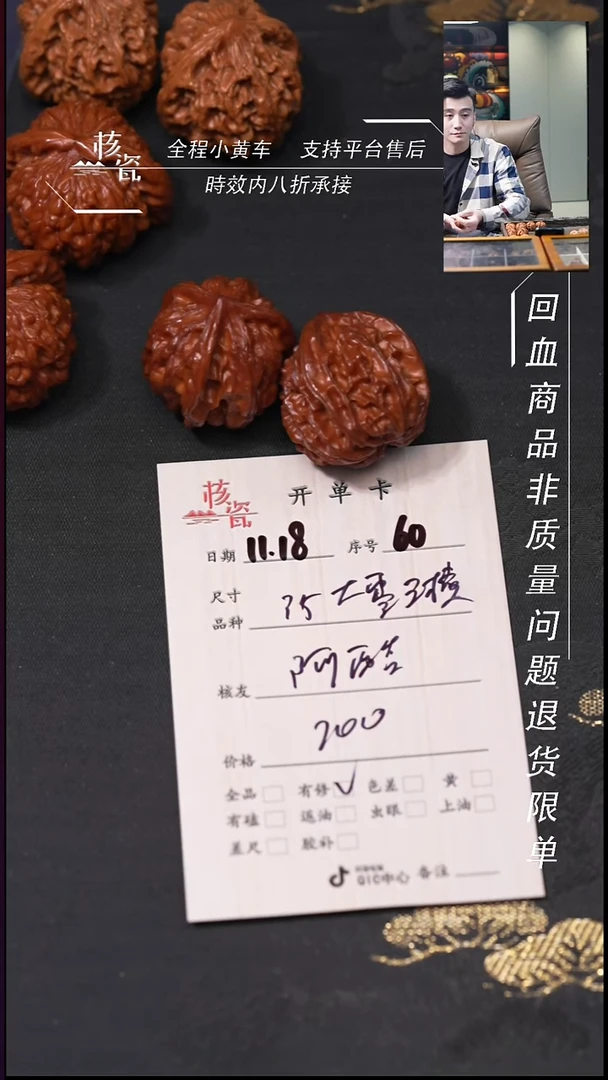 核瓷
全程小黄车 支持平台售后
時效内八折承接
回血商品非质量问题退货限单
核瓷 开单卡
日期 11.18 序号 60
尺寸
品种
阿酷
核友
200
价格
全品 有修 ✓ 色差 黄
有磕 返油 虫眼 上油
差尺 胶补
QIC中心 备注